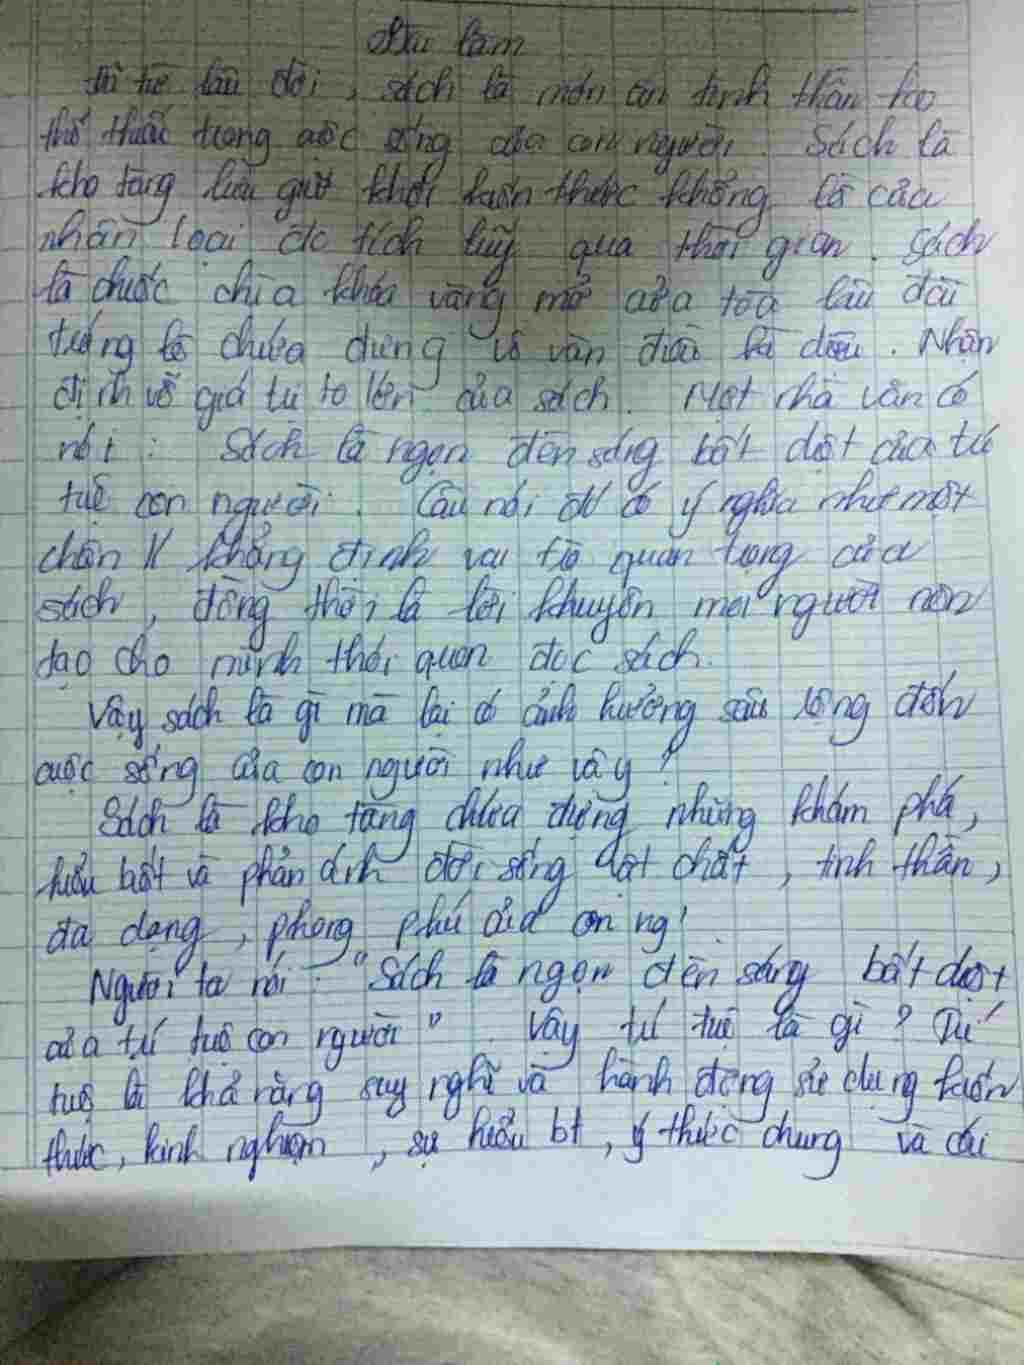 Bài làm
Từ lâu đời, sách là món ăn tinh thần ko
thể thiếu trong cuộc sống của con người. Sách là
kho tàng lưu giữ khối kiến thức khổng lồ của
nhân loại đc tích luỹ qua thời gian. Sách
là chiếc chìa khóa vàng mở cửa tòa lâu đài
tráng lệ chứa đựng vô vàn điều kì diệu. Nhận
định về giá trị to lớn của sách. Một nhà văn có
nói: Sách là ngọn đèn sáng bất diệt của trí
tuệ con người. Câu nói đó có ý nghĩa như một
chân lí khẳng định vai trò quan trọng của
sách, đồng thời là lời khuyên mọi người nên
tạo cho mình thói quen đọc sách.
Vậy sách là gì mà lại có ảnh hưởng sâu rộng đến
cuộc sống của con người như vậy?
Sách là kho tàng chứa đựng những khám phá,
hiểu biết và phản ánh đời sống vật chất, tinh thần,
đa dạng, phong phú của con ng'
Người ta nói: "Sách là ngọn đèn sáng bất diệt
của trí tuệ con người". Vậy trí tuệ là gì? Trí
tuệ là khả năng suy nghĩ và hành động sử dụng kiến
thức, kinh nghiệm, sự hiểu bt, ý thức chung và cái